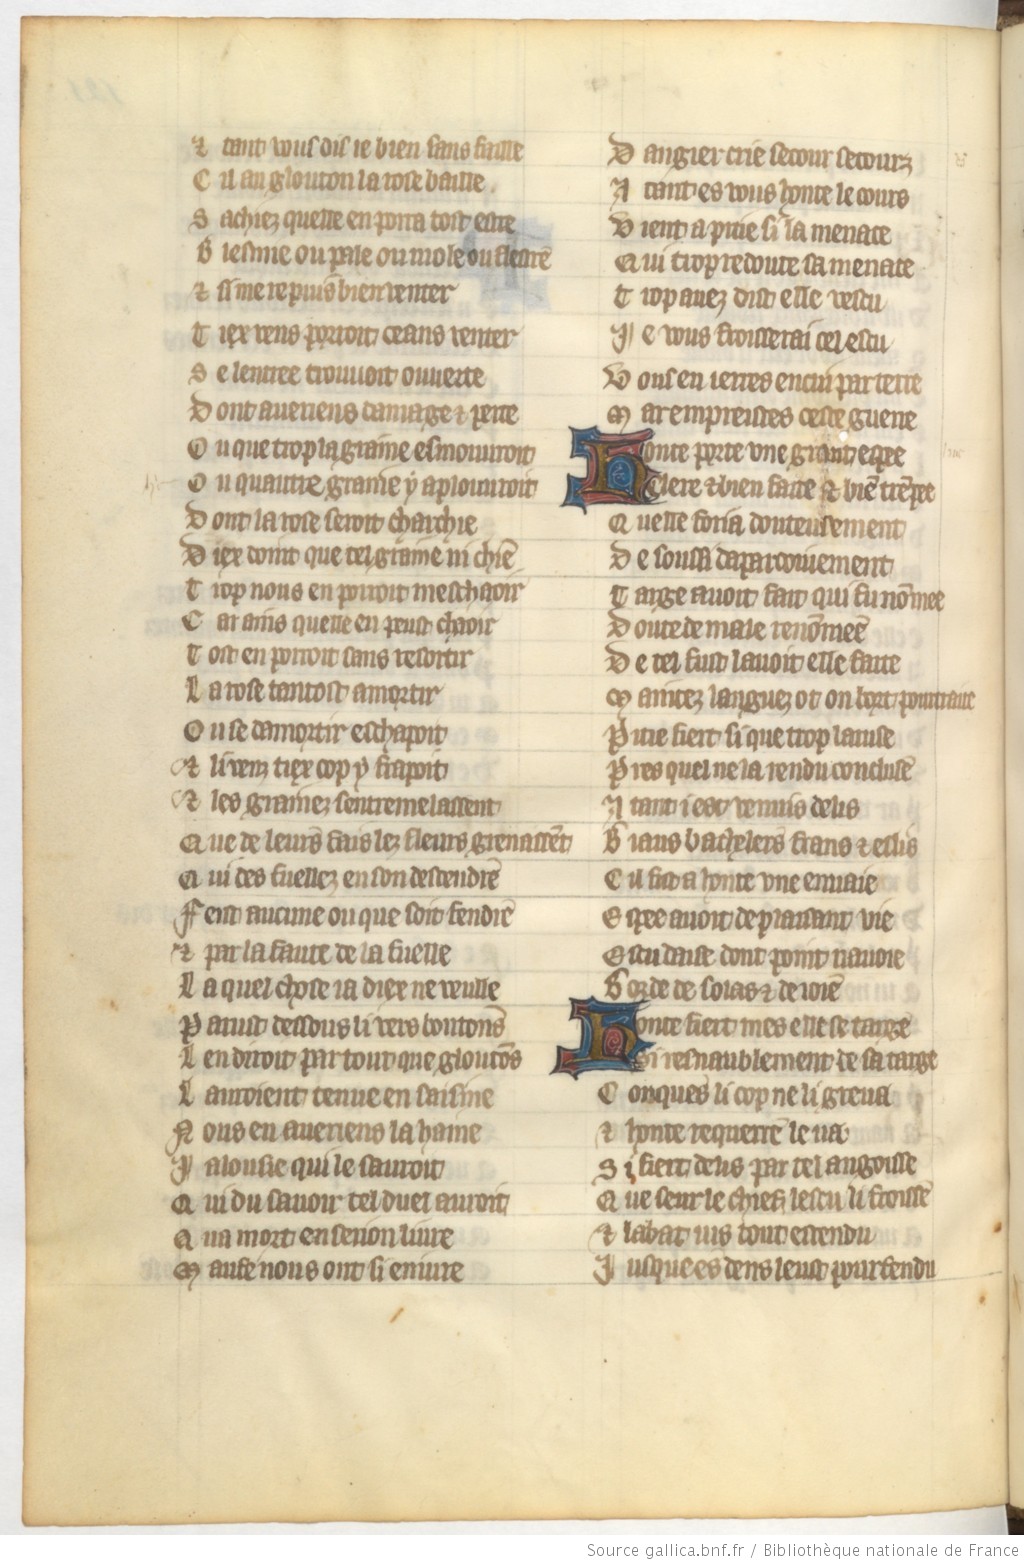 Et tant vous dis ie bien sans faille
Cil au glouton la rose baille
Sachiez quelle en porra tost estre
Blesme ou pale ou mole ou flestre
Et si me repuis bien venter
Tiex vens porroit ceans venter
Se lentree trouuoit ouuerte
Dont aueriens damage et perte
Ou que trop la graine esmouuroit
Ou quautre graine y aplouuroit
Dont la rose seroit charchie
Diex doint que tel graine ni chiē
Trop nous en porroit meschaoir
Car ains quelle en peust chaoir
Tost en porroit sans resortir
La rose tantost amortir
Ou se damortir eschapoit
Et li venz tiex cop y frapoit
Et les grainez sentremelassent
Que de leurs fais lez fleurs greuassēt
Qui des fuellez en son descendre
Feist aucune ou que soit fendre
Et par la faute de la fuelle
La quel chose ia diex ne veulle
Parust dessous li vers boutons
Len diroit par tout que gloutōs
Lauroient tenue en saisine
Nous en aueriens la haine
Jalousie qui le sauroit
Qui du sauoir tel duel auroit
Qua mort en serion liure
Maufe nous ont si eniure
Dangier crie secour secourz
A tant es vous honte le cours
Vient a pitie si la menace
Qui trop redoute sa menace
Trop auez dist elle vescu
Je vous froisserai cel escu
Vous en ierres encui par terre
Mar empreistes ceste guerre
Honte porte vne grant espee
Clere et bien faite et biē trēpee
Quelle foria douteusement
De soussi daparceuiement
Targe auoit fait qui fu nōmee
Doute de male renōmee
De tel fust lauoit elle faite
Maintez languez ot on bort pourtraite
Pitie fiert si que trop la ruse
Pres quel ne la rendu concluse
A tant i est venuis delis
Biaus bachelers frans et eslis
Cil fist a honte vne enuaie
Espee auoit de plaisant vie
Escu daise dont point nauoie
Borde de solas et de ioie
Honte fiert mes elle se targe
Si resnablement de sa targe
Conques li cop ne li greua
Et honte requerre le ua
Si fiert delis par tel angoisse
Que seur le chief lescu li froisse
Et labat ius tout estendu
Jusques es dens leust pourfendu
Source gallica.bnf.fr / Bibliothèque nationale de France